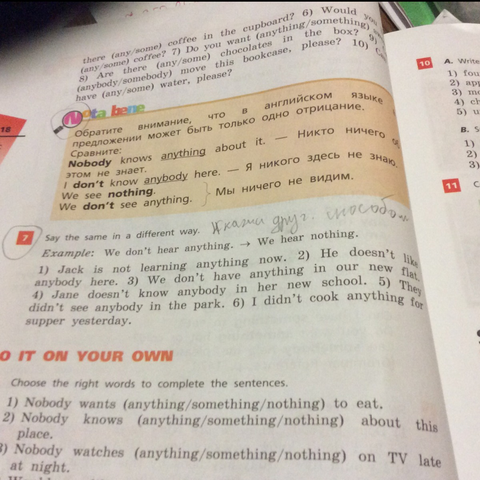 there (any/some) coffee in the cupboard? 6) Would you
(any/some) coffee? 7) Do you want (anything/something)
8) Are there (any/some) chocolates in the box? 9)
(anybody/somebody) move this bookcase, please? 10)
have (any/some) water, please?
Nota bene
Обратите внимание, что в английском языке
предложении может быть только одно отрицание.
Сравните:
Nobody knows anything about it. — Никто ничего об
этом не знает.
I don't know anybody here. — Я никого здесь не знаю.
We see nothing.
We don't see anything.
Мы ничего не видим.
7 Say the same in a different way. Скажи друг. способом
Example: We don't hear anything. → We hear nothing.
1) Jack is not learning anything now. 2) He doesn't like
anybody here. 3) We don't have anything in our new flat.
4) Jane doesn't know anybody in her new school. 5) They
didn't see anybody in the park. 6) I didn't cook anything for
supper yesterday.
O IT ON YOUR OWN
Choose the right words to complete the sentences.
1) Nobody wants (anything/something/nothing) to eat.
2) Nobody knows (anything/something/nothing) about this
place.
3) Nobody watches (anything/something/nothing) on TV late
at night.
18
10 A. Write
1) fou
2)
3)
4)
5)
B.
1)
2)
3)
11